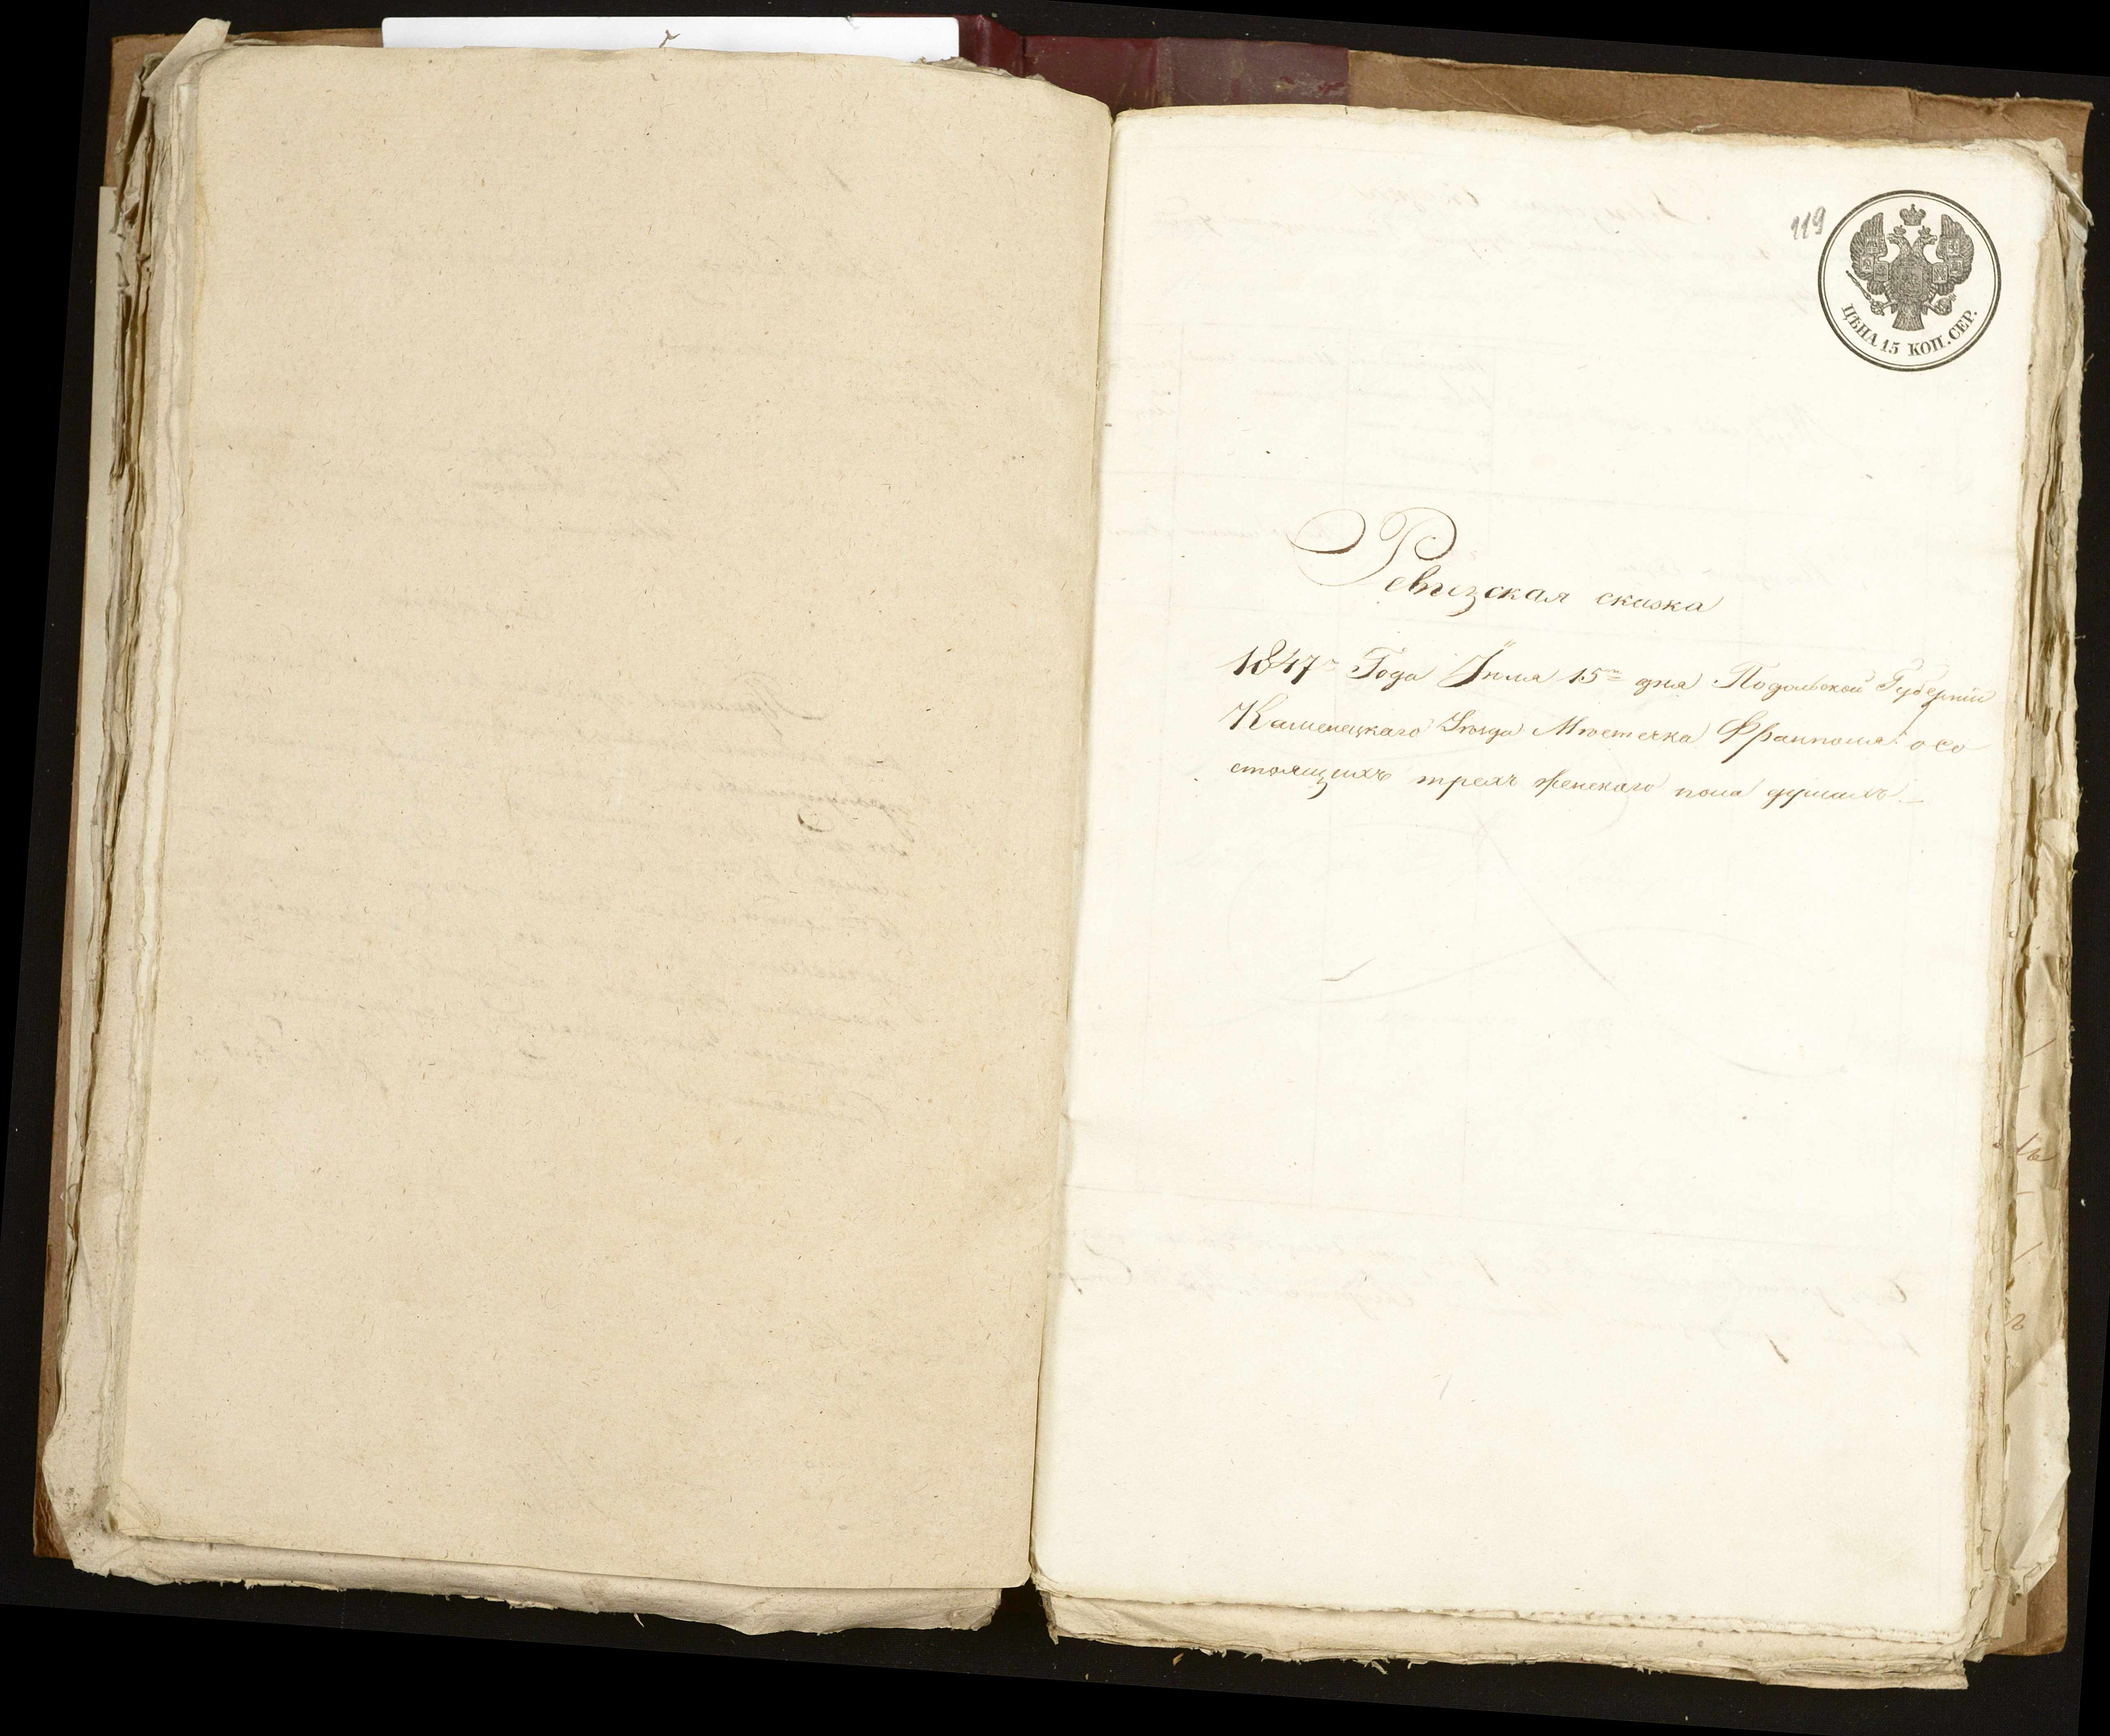 119
ЦѢНА 15 КОП. СЕР.
Ревизская сказка
1847го Года Іюля 15го дня Подольской Губерніи
Каменецкаго Уѣзда Мѣстечка Франполя о со
стоящихъ трехъ женскаго пола душахъ.